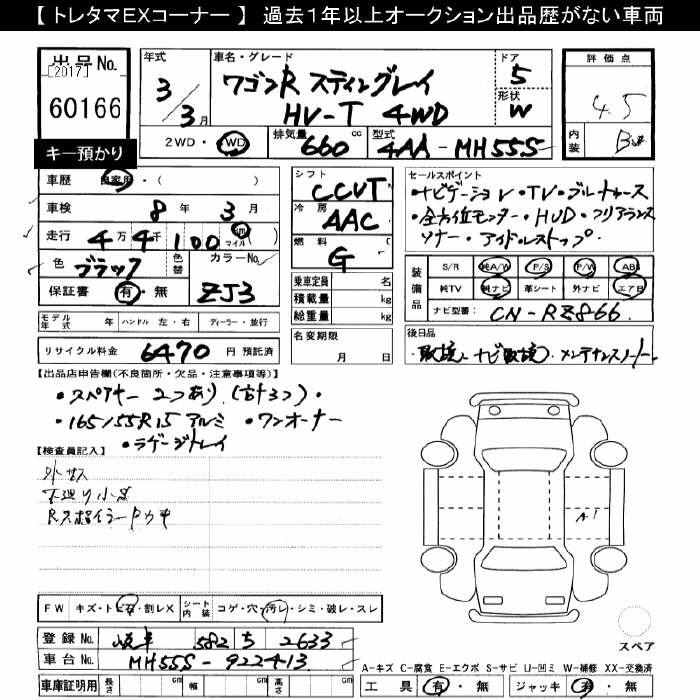 【 トレタマEXコーナー 】 過去1年以上オークション出品歴がない車両
出品No.
[2017]
60166
キー預かり
年式
3/3月
車名・グレード
ワゴンR スティングレイ
HV-T 4WD
ドア
5
形状
W
2WD・4WD
排気量
660 cc
型式
4AA-MH55S
評価点
4.5
内装
B
車歴 自家用・( )
車検 8年 3月
走行 4万 4千 100 km マイル
色 ブラック
色替
カラーNo.
ZJ3
保証書 有・無
シフト
CCVT
冷房
AAC
燃料
G
乗車定員 名
積載量 kg
総重量 kg
名変期限
月 日
セールスポイント
・ナビゲーション・TV・ブルートゥース
・全方位モニター・HUD・クリアランス
ソナー・アイドルストップ・
装備品
S/R 純A/W P/S P/W ABS
純TV 純ナビ 革シート 外ナビ エアB
ナビ型番: CN-RZ866
モデル年式 年 ハンドル 左・右 ディーラー・並行
リサイクル料金 6470 円 預託済
後日品
・取説、ナビ取説、メンテナンスノート
【出品店申告欄(不良箇所・欠品・注意事項等)】
・スペアキー 2つあり(計3つ)・
・165/55R15 アルミ ・ワンオーナー
・ラゲージトレイ
【検査員記入】
外キズ
下廻り小サビ
A1
FW キズ・トビ石・割レX
シート内装 コゲ・穴・汚レ・シミ・破レ・スレ
登録No. 岐阜 582 ち 2633
車台No. MH55S-922413
車庫証明用 長さ cm 幅 cm 高さ cm
スペア
A-キズ C-腐食 E-エクボ S-サビ U-凹ミ W-補修 XX-交換済
工具 有・無 ジャッキ 有・無